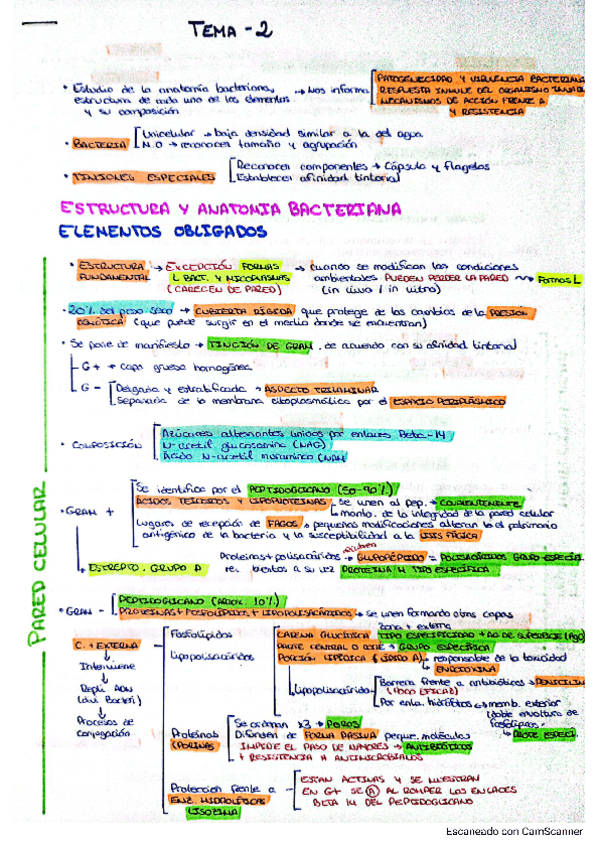 TEMA - 2
• Estudio de la anatomía bacteriana, → Nos informa PATOGENECIDAD Y VIRULENCIA BACTERIANA
estructura de cada uno de los elementos RESPUESTA INMUNE DEL ORGANISMO
y su composición MECANISMOS DE ACCIÓN FRENTE A
Y RESISTENCIA
• BACTERIA Unicelular → baja densidad similar a la del agua
M.O → reconocer tamaño y agrupación
• TINCIONES ESPECIALES Reconocer componentes → Cápsula y flagelos
Establecer afinidad tintorial
ESTRUCTURA Y ANATOMIA BACTERIANA
ELEMENTOS OBLIGADOS
PARED CELULAR
• ESTRUCTURA FUNDAMENTAL → EXCEPCIÓN FORMAS L BACT. Y MICOPLASMAS (CARECEN DE PARED)
→ Cuando se modifican las condiciones
ambientales PUEDEN PERDER LA PARED → Formas L
(in vivo / in vitro)
• 20% del peso seco → CUBIERTA RÍGIDA que protege de los cambios de la PRESIÓN
OSMÓTICA (que puede surgir en el medio donde se encuentran)
• Se pone de manifiesto → TINCIÓN DE GRAM, de acuerdo con su afinidad tintorial
G+ → capa gruesa homogénea
G - Delgada y estratificada → ASPECTO TRILAMINAR
Separada de la membrana citoplasmática por el ESPACIO PERIPLÁSMICO
• COMPOSICIÓN Azúcares alternantes unidos por enlaces Beta-14
N-acetil glucosamina (NAG)
Ácido N-acetil murámico (NAM
• GRAM + Se identifica por el PEPTIDOGLICANO (50-90%)
ÁCIDOS TEICOICOS Y LIPOPROTEINAS se unen al pep. → COVALENTEMENTE
manto. de la integridad de la pared celular
Lugares de recepción de FAGOS → pequeñas modificaciones alteran la el patrimonio
antigénico de la bacteria y la susceptibilidad a la LISIS FÁGICA
↳ ESTREPTO. GRUPO A Proteinas + polisacáridos → GLUCOPÉPTIDO = POLISACÁRIDOS GRUPO ESPECI.
a su vez PROTEÍNA M TIPO ESPECÍFICA
• GRAM - PEPTIDOGLICANO (APROX. 10%)
PROTEINAS + FOSFOLÍPIDOS + LIPOPOLISACÁRIDOS → se unen formando otras capas
C. EXTERNA
Interviene
Repli. ADN
(divi. Bacteri)
Procesos de
conjugación
Fosfolípidos
Lipopolisacáridos
zona + externa
CADENA GLUCÍDICA TIPO ESPECIFICIDAD + AG DE SUPERFICIE (Ago)
PARTE CENTRAL O CORE → GRUPO ESPECÍFICA
PORCIÓN LIPÍDICA (LÍPIDO A) → responsable de la toxicidad
ENDOTOXINA
Lipopolisacárido Barrera frente a antibióticos → PENICILIN
(POCO EFICAZ)
Por ente. hidrófobos → memb. exterior
(doble envoltura de
fosfolípidos.
PROTE ESPECI.
Proteinas
(PORINAS
Se ordenan x3 → POROS
Difunden de FORMA PASIVA peque. moléculas
IMPIDE EL PASO DE MAYORES → ANTIBIÓTICOS
+ RESISTENCIA A ANTIMICROBIANOS
Protección frente a
ENZ HIDROLÍTICAS
LISOZIMA
ESTÁN ACTIVAS Y SE MUESTRAN
EN G+ SE Ⓐ AL ROMPER LOS ENLACES
BETA 14 DEL PEPTIDOGLICANO
Escaneado con CamScanner